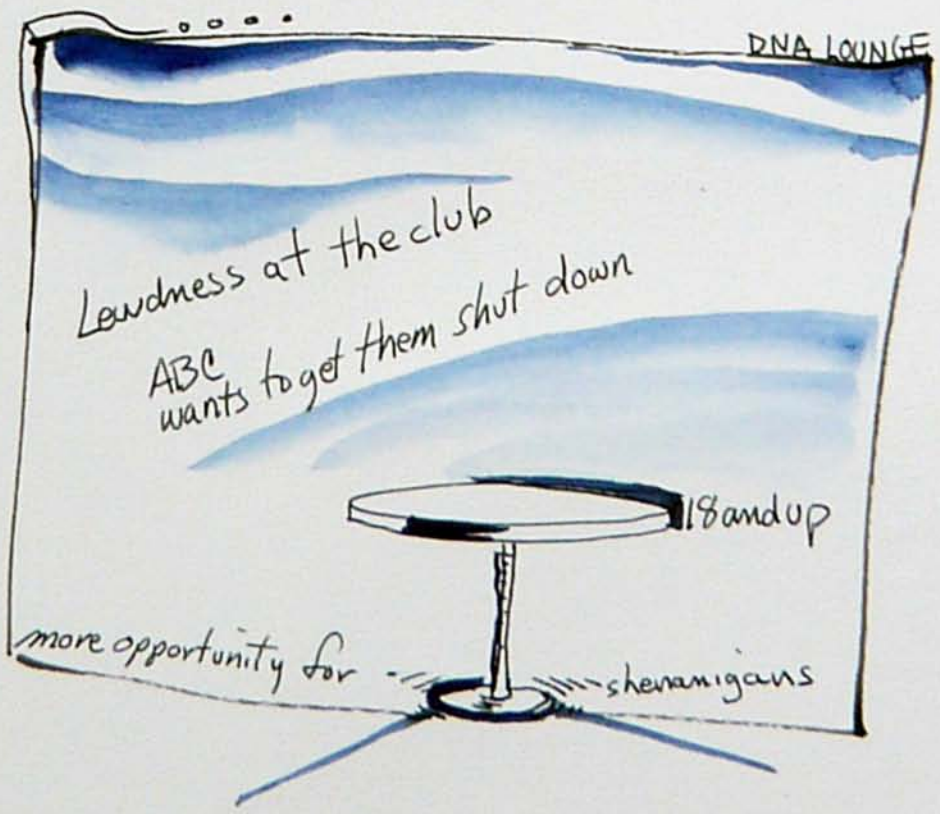 DNA LOUNGE
Lewdness at the club
ABC
wants to get them shut down
18 and up
more opportunity for shenanigans